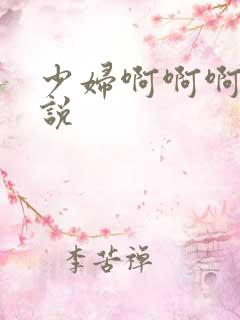 少婦啊啊啊
說
李苦禅